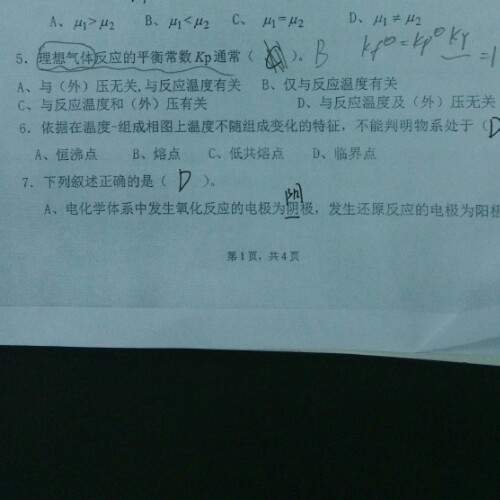 A、μ₁>μ₂ B、μ₁<μ₂ C、μ₁=μ₂ D、μ₁≠μ₂
5．理想气体反应的平衡常数Kp通常（ ）。B
A、与（外）压无关,与反应温度有关 B、仅与反应温度有关
C、与反应温度和（外）压有关 D、与反应温度及（外）压无关
6．依据在温度-组成相图上温度不随组成变化的特征，不能判明物系处于（D
A、恒沸点 B、熔点 C、低共熔点 D、临界点
7．下列叙述正确的是（ D ）。
A、电化学体系中发生氧化反应的电极为阴极，发生还原反应的电极为阳极
第1页，共4页